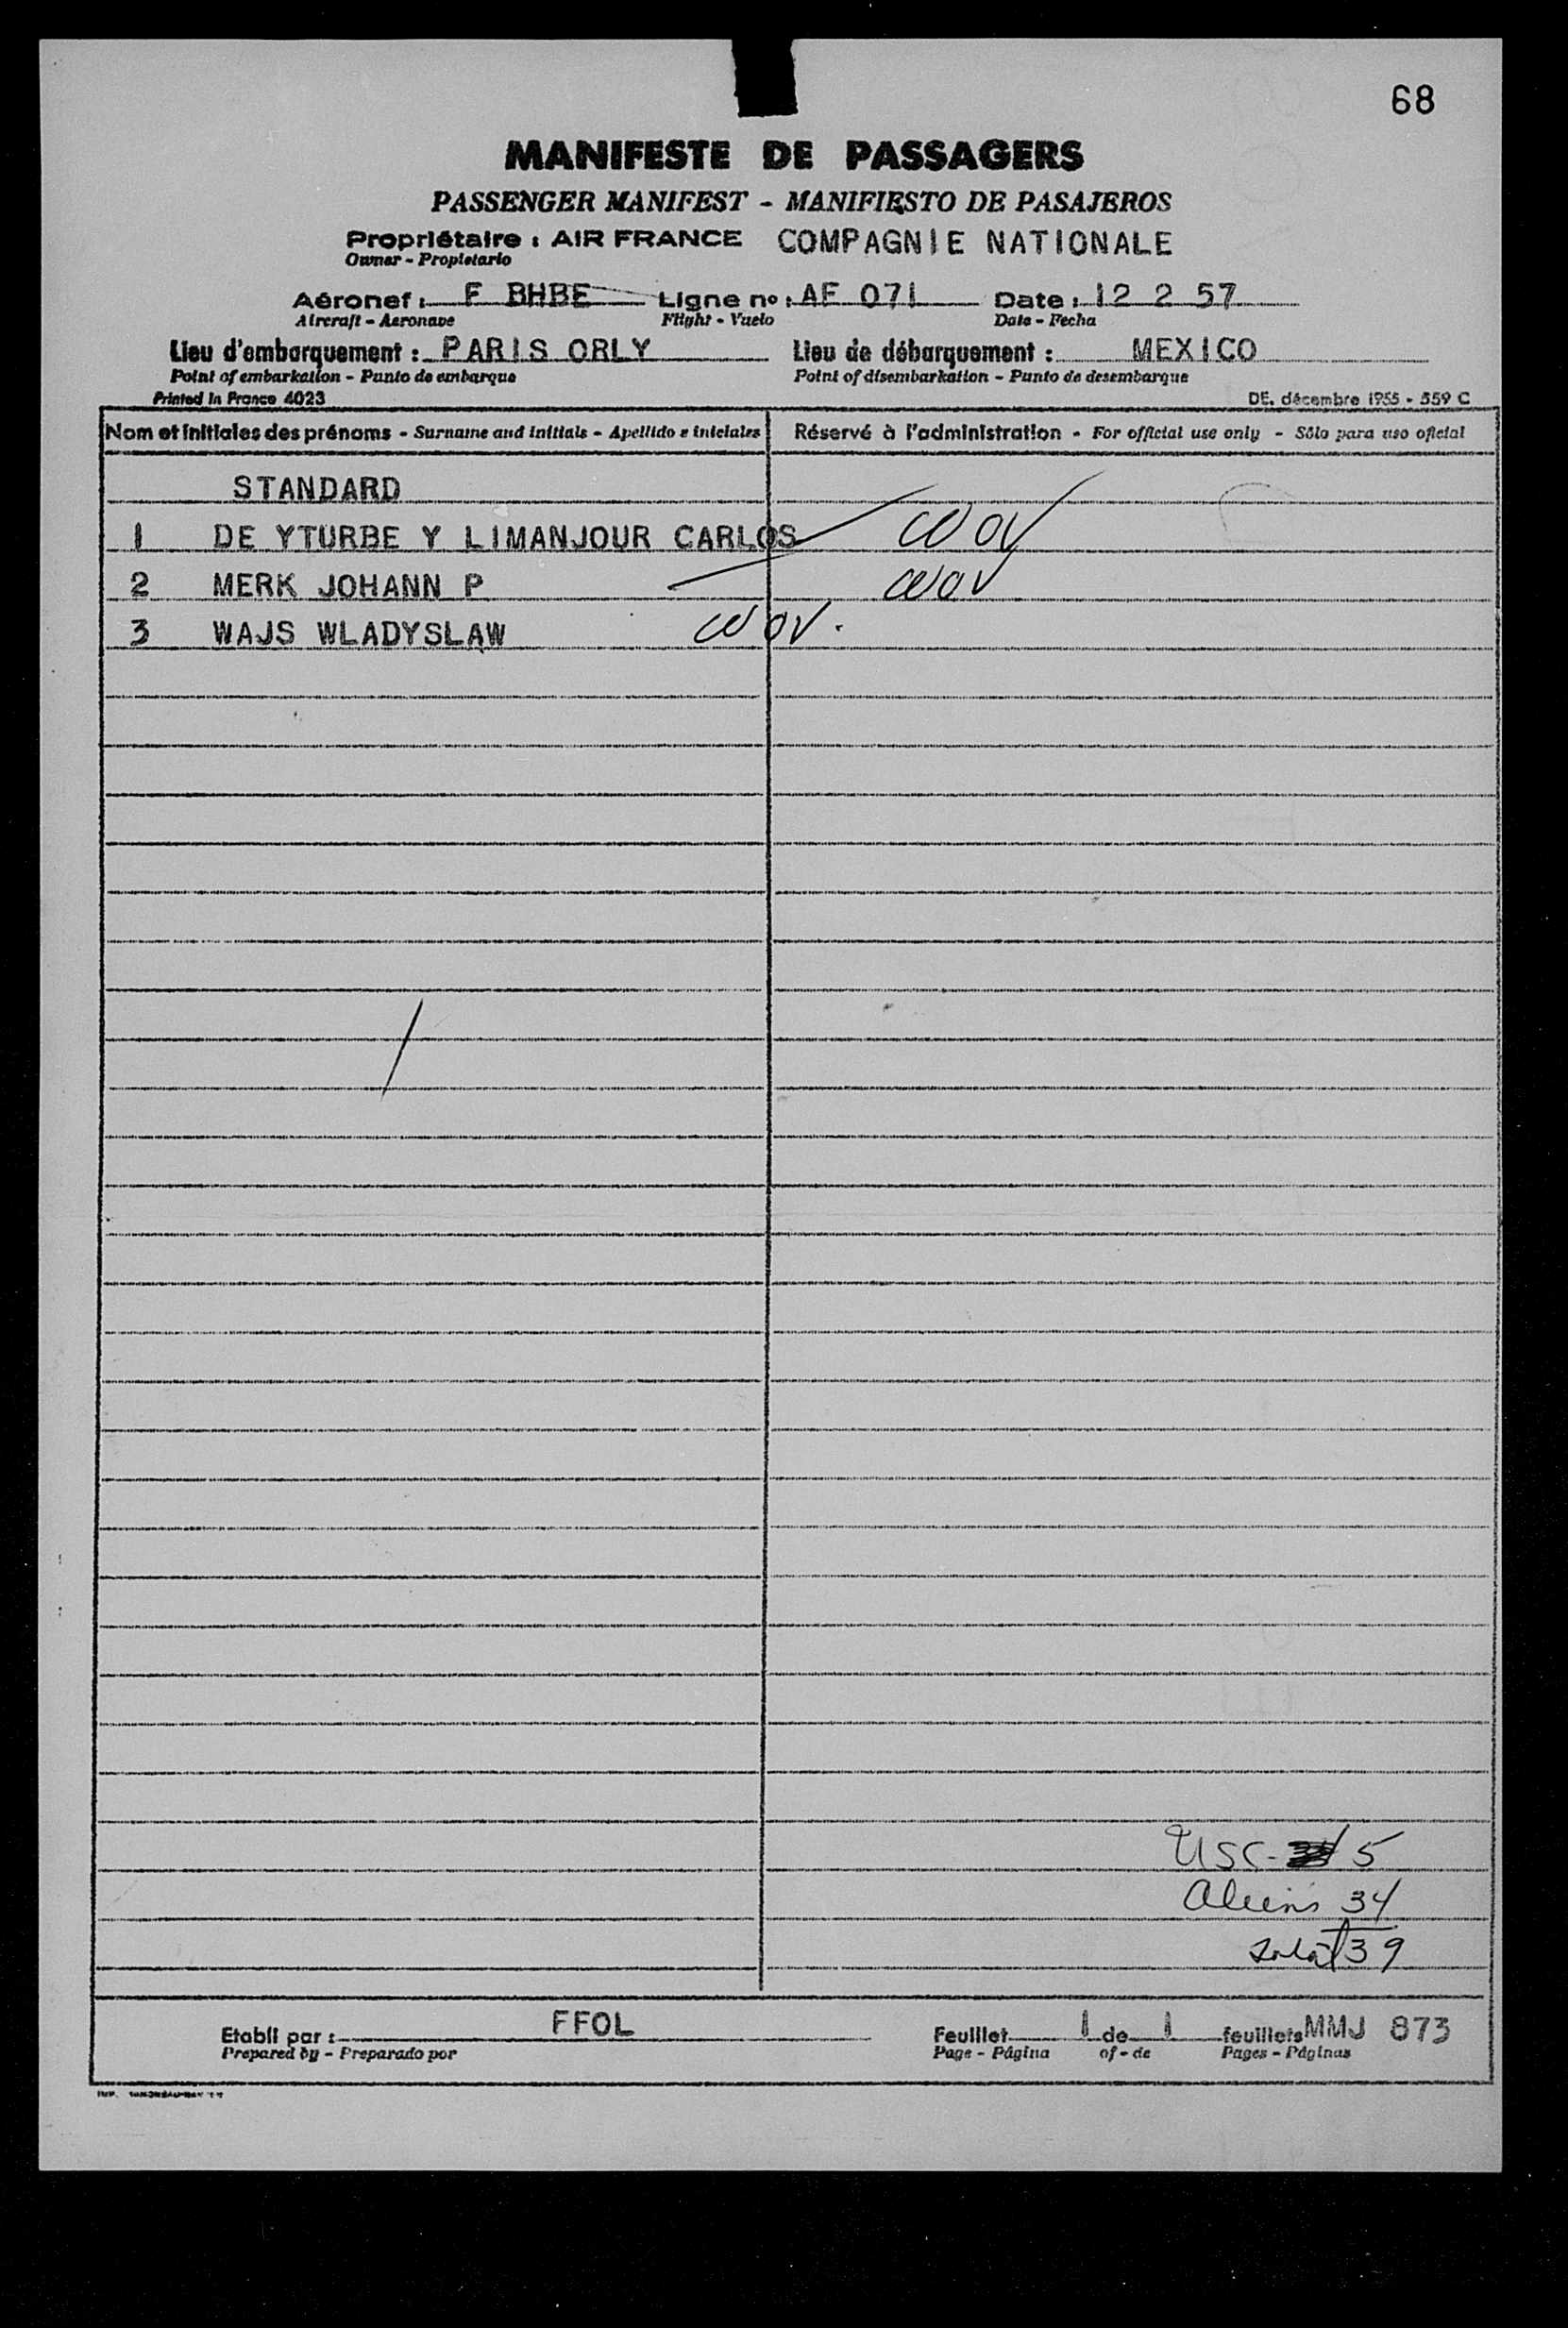 68
MANIFESTE DE PASSAGERS
PASSENGER MANIFEST - MANIFIESTO DE PASAJEROS
Propriétaire : AIR FRANCE COMPAGNIE NATIONALE
Owner - Propietario
Aéronef : F BHBE Ligne no : AF 071 Date : 12 2 57
Aircraft - Aeronave Flight - Vuelo Date - Fecha
Lieu d'embarquement : PARIS ORLY Lieu de débarquement : MEXICO
Point of embarkation - Punto de embarque Point of disembarkation - Punto de desembarque
Printed in France 4023 DE. décembre 1955 - 559 C
Nom et initiales des prénoms - Surname and initials - Apellido e iniciales Réservé à l'administration - For official use only - Sólo para uso oficial
STANDARD
1 DE YTURBE Y LIMANJOUR CARLOS
2 MERK JOHANN P
3 WAJS WLADYSLAW
USC- 5
Aliens 34
Total 39
Etabli par : FFOL Feuillet 1 de 1 feuillets MMJ 873
Prepared by - Preparado por Page - Página of - de Pages - Páginas